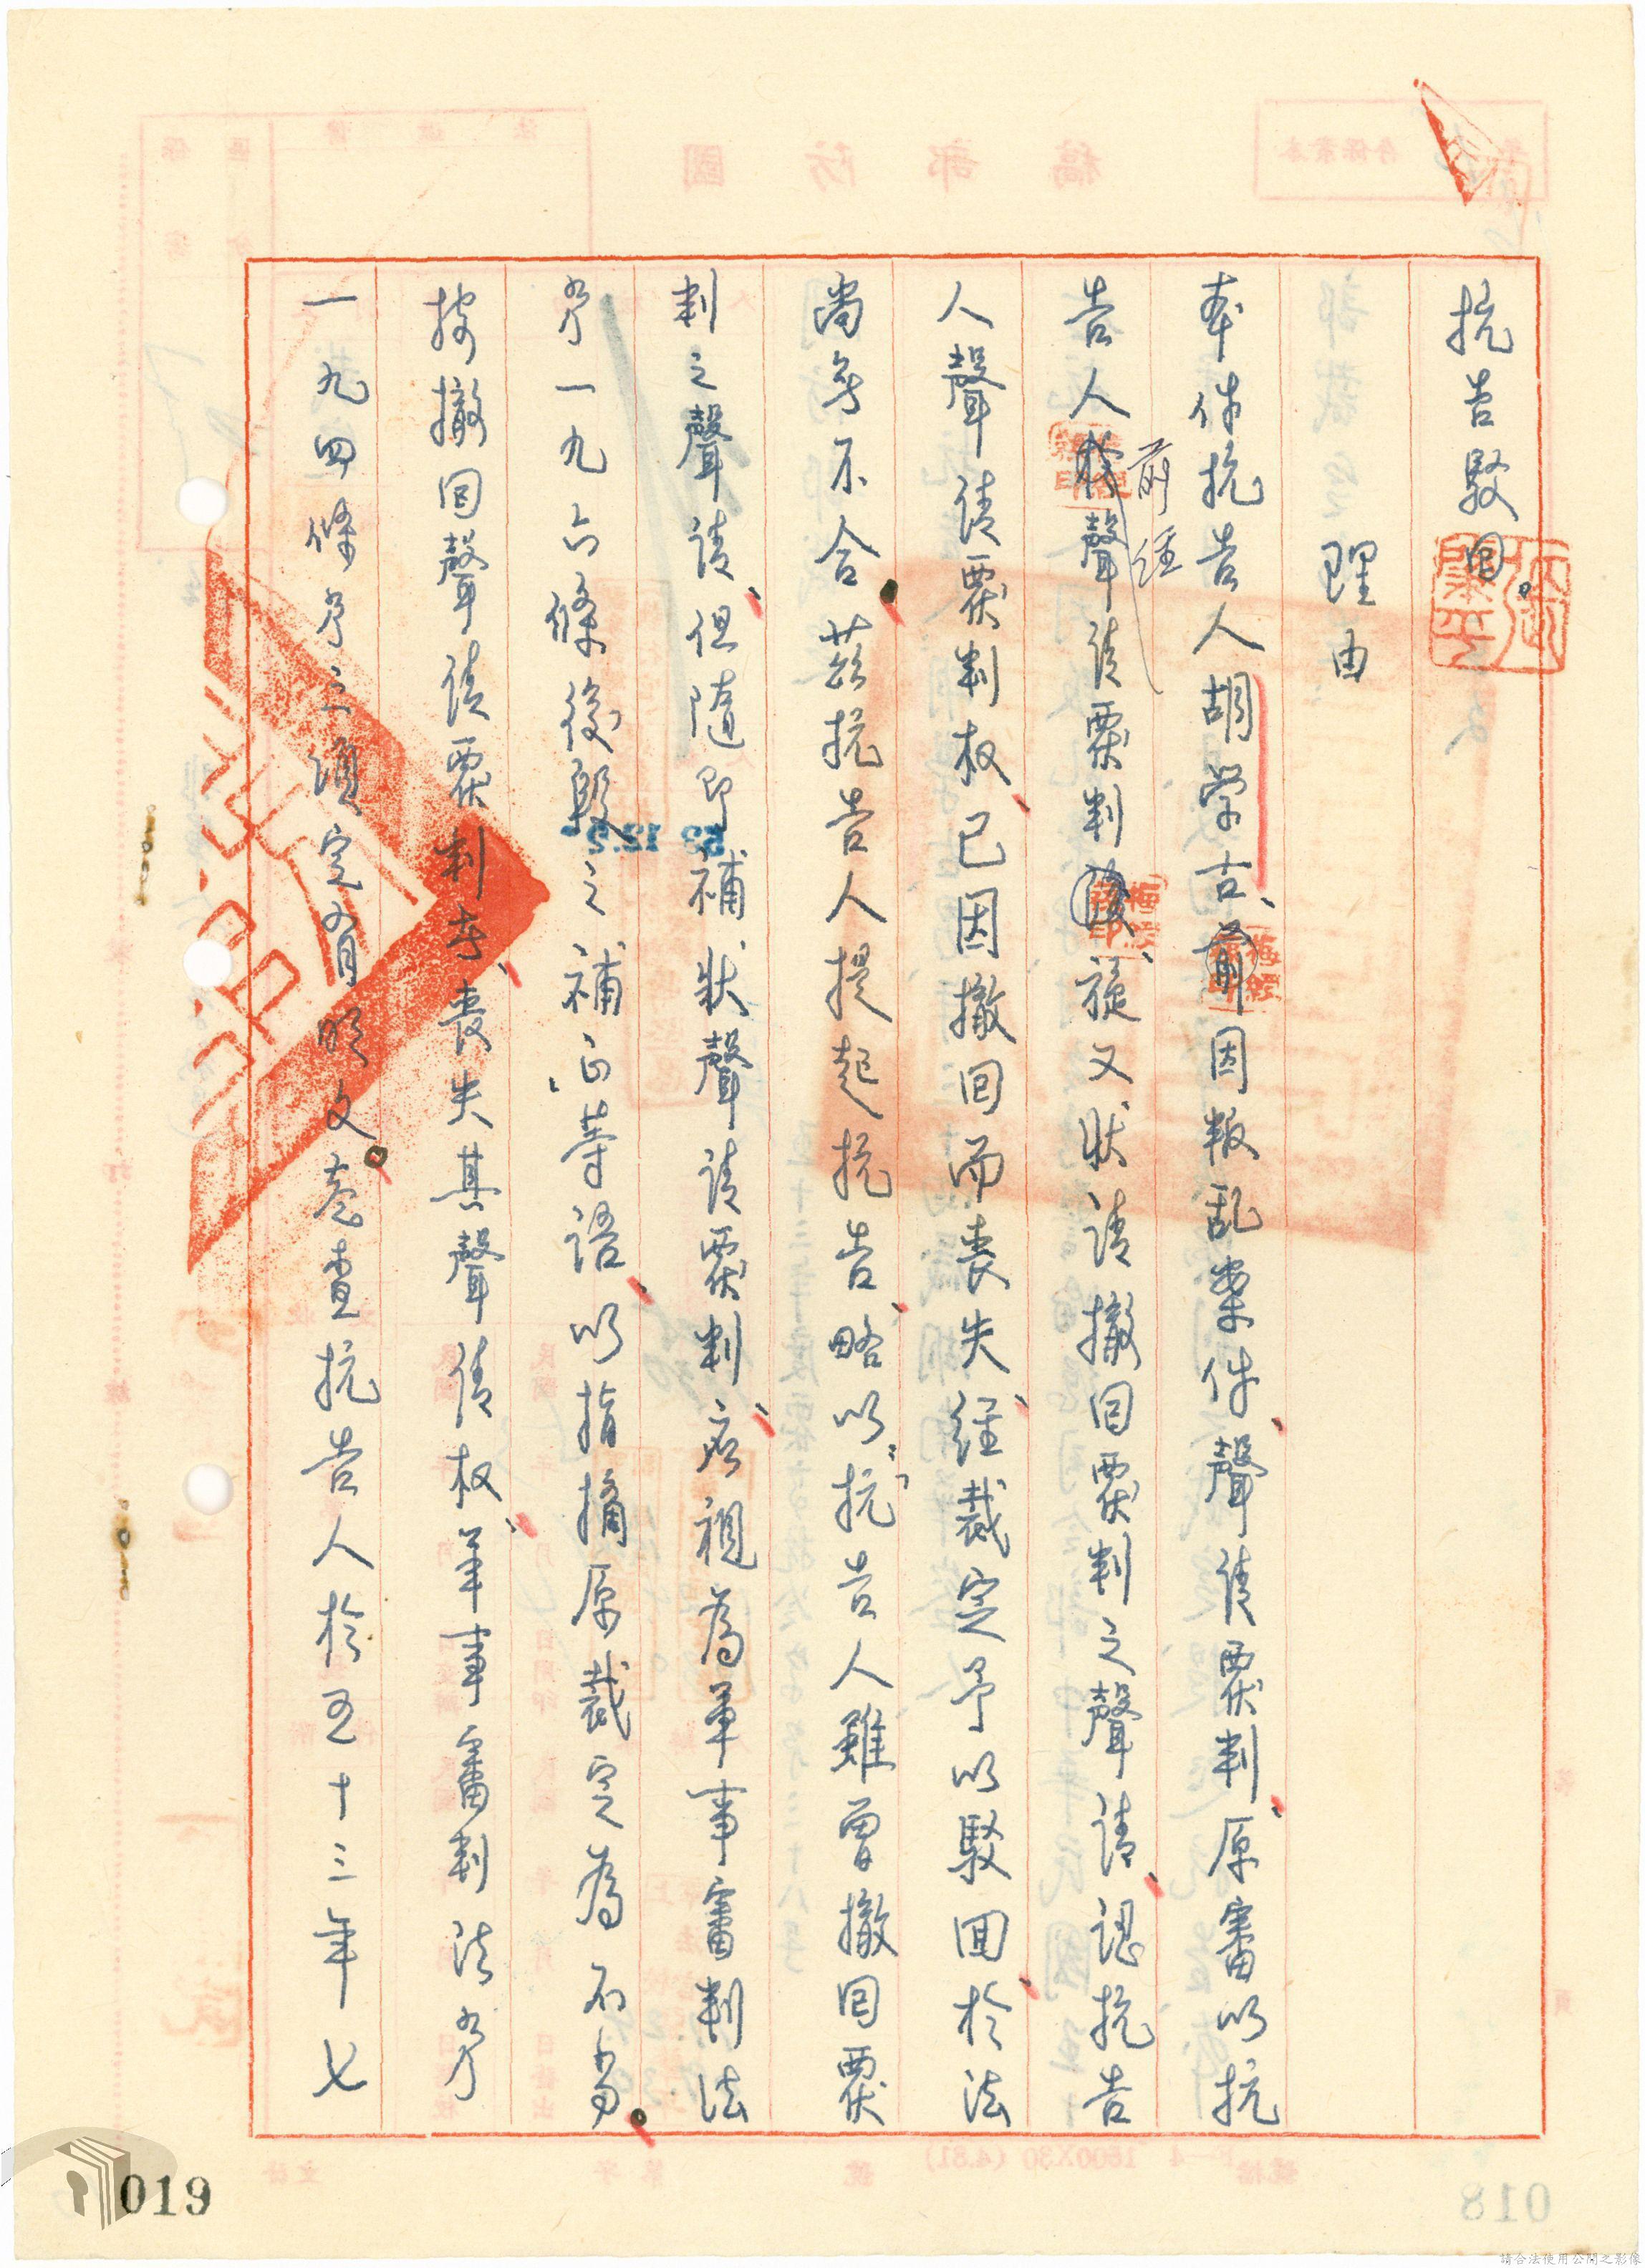 抗告駁回。
理由
本件抗告人胡学古、因叛乱案件、聲请覆判、原審以抗
告人前經聲请覆判、旋又狀请撤回覆判之聲请、認抗告
人聲请覆判权、已因撤回而喪失、經裁定予以駁回、於法
尚无不合。茲抗告人提起抗告、略以〝抗告人雖曾撤回覆
判之聲请、但隨即補狀聲请覆判、应視為軍事審判法
第一九六條後段之補正〞等語、以指摘原裁定為不当。
按撤回聲请覆判者、喪失其聲请权、軍事審判法第
一九四條第三項定有明文。卷查抗告人於五十三年七
019
018
請合法使用公開之影像